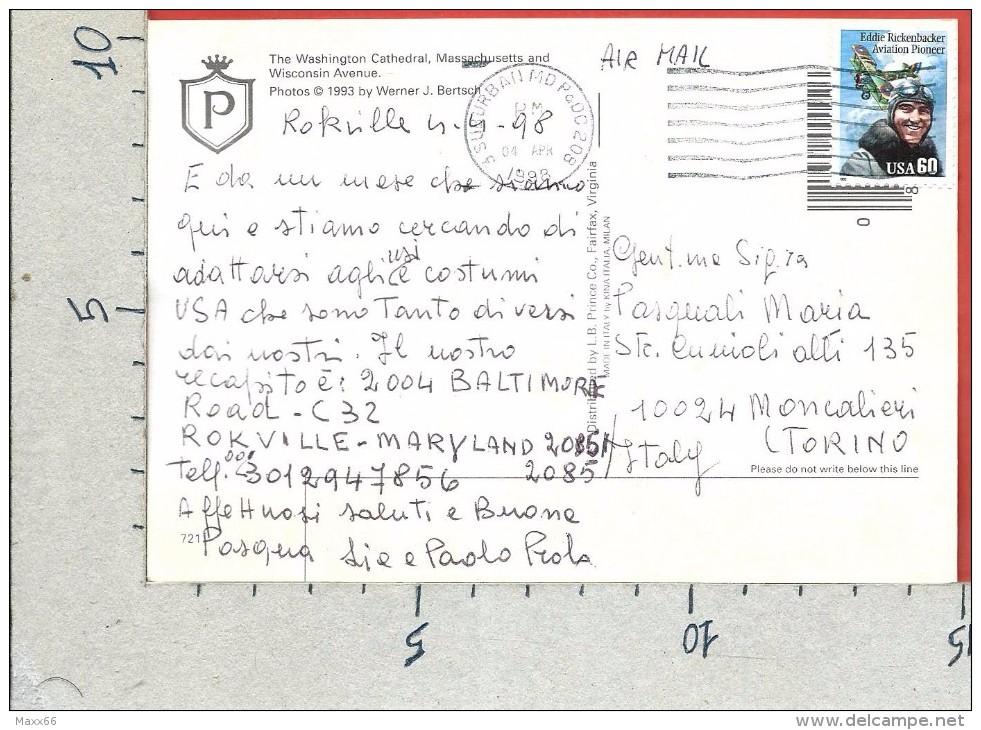 The Washington Cathedral, Massachusetts and
Wisconsin Avenue.
Photos © 1993 by Werner J. Bertsch
P
AIR MAIL
Eddie Rickenbacker
Aviation Pioneer
USA 60
SUBURBAN MD P&DC 208
PM
04 APR
1998
Rokville 4-98
E da un mese che siamo
qui e stiamo cercando di
adattarsi agli usi e costumi
USA che sono Tanto diversi
dai nostri. Il nostro
recapito è: 2004 BALTIMORE
Road - C32
ROKVILLE - MARYLAND 20851
20851
Telf. 0013012947856
Affettuosi saluti e Buona
Pasqua Lia e Paolo
721
Distributed by L.B. Prince Co., Fairfax, Virginia
MADE IN ITALY by KINA ITALIA, MILAN
Gent.ma Sig.ra
Pasquali Maria
Str. Cunioli alti 135
10024 Moncalieri
(TORINO
Italy
Please do not write below this line
8
0
10
5
5
10
15
Maxx66
www.delcampe.net